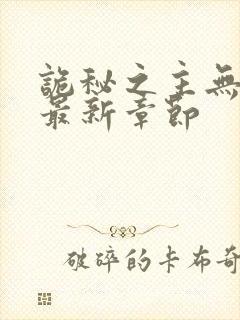 詭秘之主無
最新章節
破碎的卡布奇